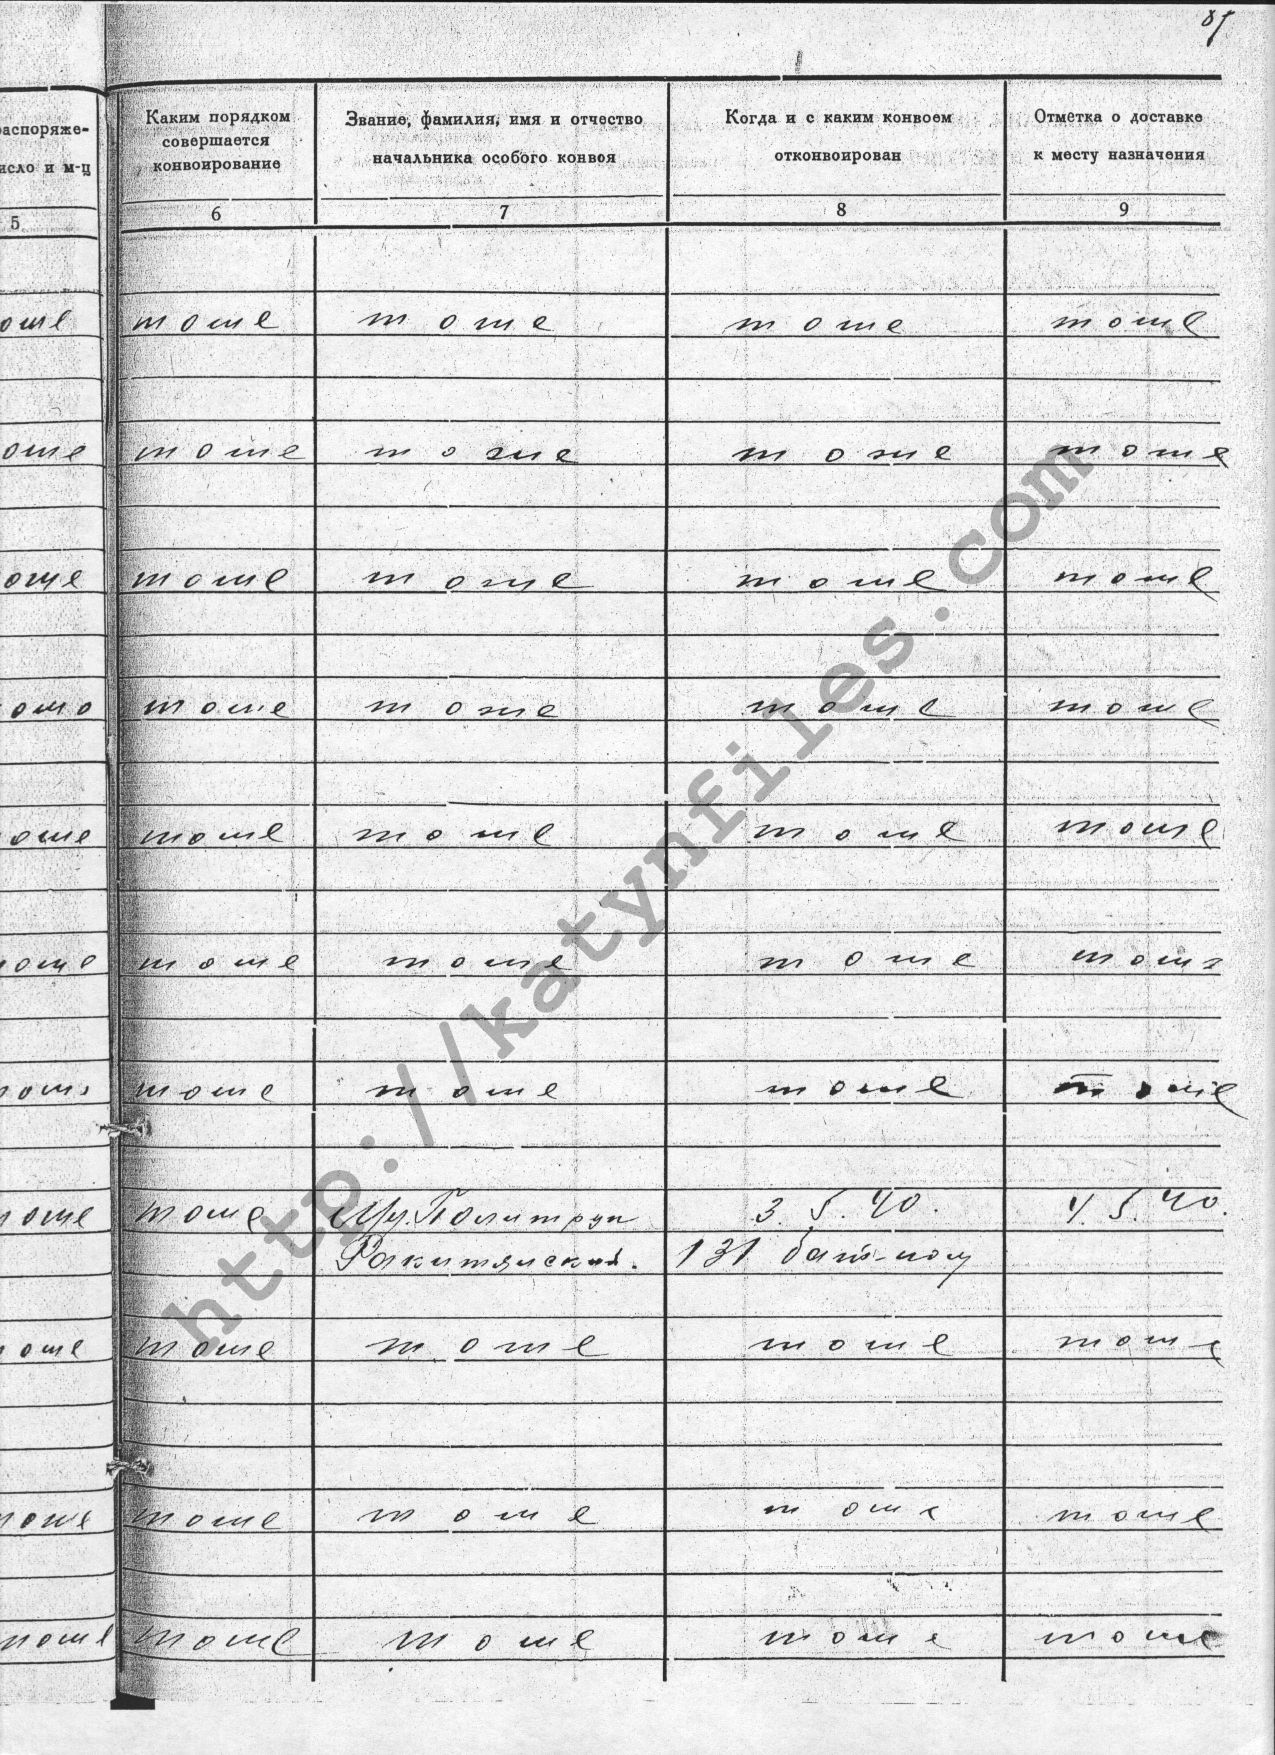 81
распоряже-
исло и м-ц
5
Каким порядком
совершается
конвоирование
6
Звание, фамилия, имя и отчество
начальника особого конвоя
7
Когда и с каким конвоем
отконвоирован
8
Отметка о доставке
к месту назначения
9
оже тоже тоже тоже тоже
оже тоже тоже тоже тоже
оже тоже тоже тоже тоже
оже тоже тоже тоже тоже
оже тоже тоже тоже тоже
тоже тоже тоже тоже тоже
тоже тоже тоже тоже тоже
тоже тоже Мл. Политрук 3. 5. 40. 4. 5. 40.
Ракитянский. 131 бат-ном
тоже тоже тоже тоже тоже
тоже тоже тоже тоже тоже
тоже тоже тоже тоже тоже
http://katynfiles.com